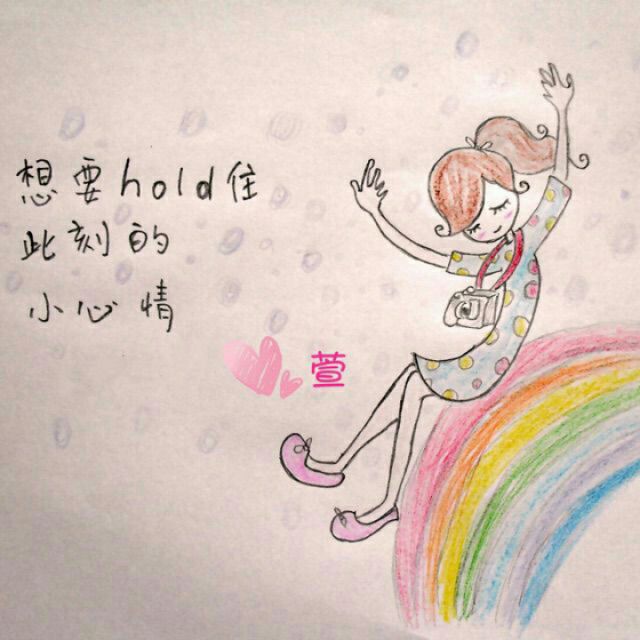 想要hold住
此刻的
小心情
萱